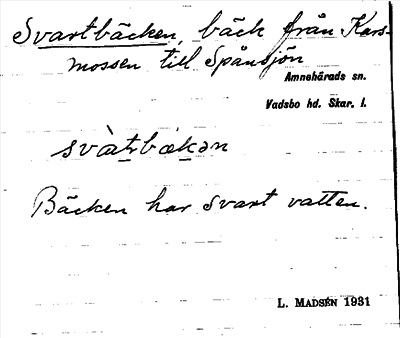 Svartbäcken, bäck från Kars-
mossen till Spånsjön
Amnehärads sn.
Vadsbo hd. Skar. l.
svàtrbækən
Bäcken har svart vatten.
L. MADSÉN 1931